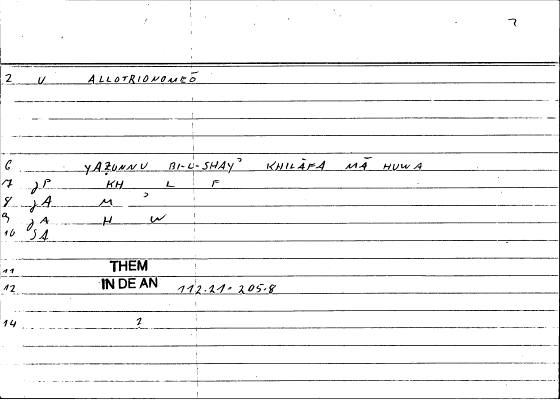 2 V ALLOTRIONOMEŌ
6 YAẒUNNU BI-L-SHAYʾ KHILĀFA MĀ HUWA
7 JP KH L F
8 JA M ʾ
9 JA H W
10 SA
11 THEM
12 IN DE AN 112.21-205.8
14 2